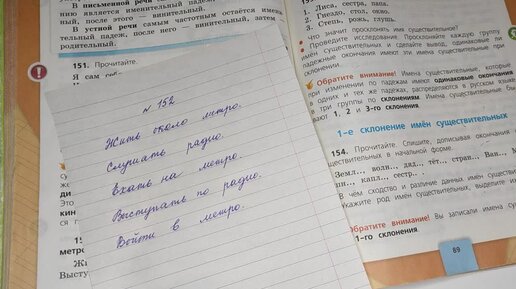 В письменной речи
нию является именительный падеж,
ный, после этого — винительный.
В устной речи самым частотным остаётся имени-
тельный падеж, после него — винительный, затем
родительный.
151. Прочитайте.
Я сам
№ 152
Жить около метро.
Слушать радио.
Ехать на метро.
Выступать по радио.
Войти в метро.
ди
Это
кин
ся п
метро
Жи
Высту
2. Лиса, сестра, папа.
2. Гнездо, стол, окно.
3. Степь, рожь, глушь.
Что значит просклонять имя существительное?
Проведите исследование. Просклоняйте каждую группу
имён существительных и сделайте вывод, одинаковы ли
падежные окончания имеют эти имена существительные при
склонении.
Обратите внимание! Имена существительные, которые
при изменении по падежам имеют одинаковые окончания
в одних и тех же падежах, распределяются в русском языке
в три группы по склонениям. Имена существительные бы-
вают 1, 2 и 3-го склонения.
1-е склонение имён существительных
154. Прочитайте. Спишите, дописывая окончания
существительных в начальной форме.
Земл.., волн.., дяд.., тёт.., стран.., Ван.., М
ин.., капл.., сестр..
В чём сходство и различие данных имён существител
Укажите род имён существительных, выделите их
Обратите внимание! Вы записали имена су
1-го склонения.
89